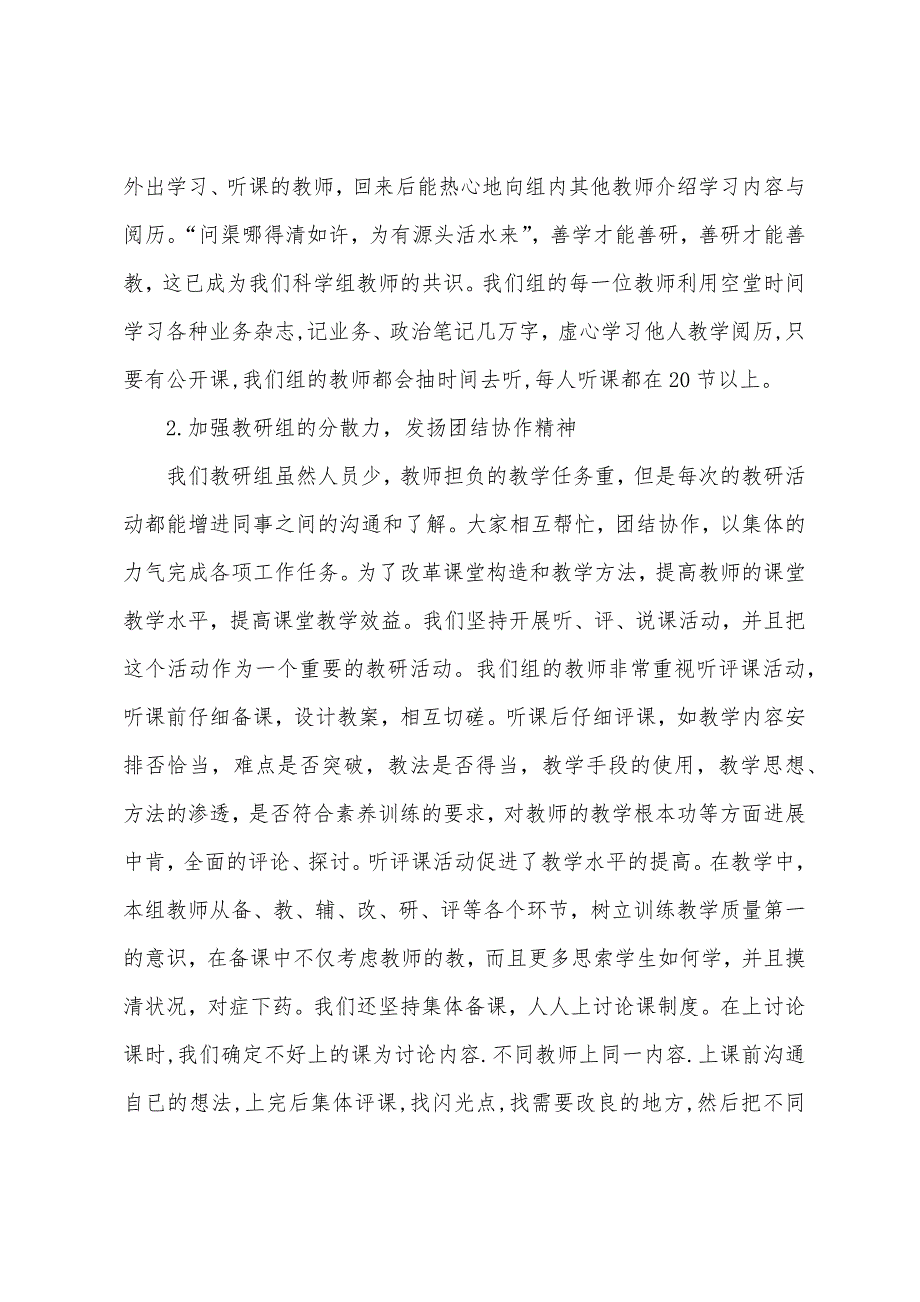 外出学习、听课的教师，回来后能热心地向组内其他教师介绍学习内容与
阅历。“问渠哪得清如许，为有源头活水来”，善学才能善研，善研才能善
教，这已成为我们科学组教师的共识。我们组的每一位教师利用空堂时间
学习各种业务杂志,记业务、政治笔记几万字，虚心学习他人教学阅历,只
要有公开课,我们组的教师都会抽时间去听,每人听课都在 20 节以上。
2.加强教研组的分散力，发扬团结协作精神
我们教研组虽然人员少，教师担负的教学任务重，但是每次的教研活
动都能增进同事之间的沟通和了解。大家相互帮忙，团结协作，以集体的
力气完成各项工作任务。为了改革课堂构造和教学方法，提高教师的课堂
教学水平，提高课堂教学效益。我们坚持开展听、评、说课活动，并且把
这个活动作为一个重要的教研活动。我们组的教师非常重视听评课活动，
听课前仔细备课，设计教案，相互切磋。听课后仔细评课，如教学内容安
排否恰当，难点是否突破，教法是否得当，教学手段的使用，教学思想、
方法的渗透，是否符合素养训练的要求，对教师的教学根本功等方面进展
中肯，全面的评论、探讨。听评课活动促进了教学水平的提高。在教学中，
本组教师从备、教、辅、改、研、评等各个环节，树立训练教学质量第一
的意识，在备课中不仅考虑教师的教，而且更多思索学生如何学，并且摸
清状况，对症下药。我们还坚持集体备课，人人上讨论课制度。在上讨论
课时,我们确定不好上的课为讨论内容.不同教师上同一内容.上课前沟通
自己的想法,上完后集体评课,找闪光点,找需要改良的地方,然后把不同